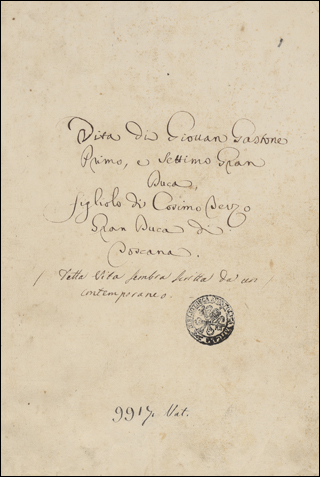 Vita di Giovan Gastone
Primo, e Settimo Gran
Duca,
figliolo di Cosimo Terzo
Gran Duca di
Toscana.
Detta Vita sembra scritta da un
contemporaneo.
9917. Vat.